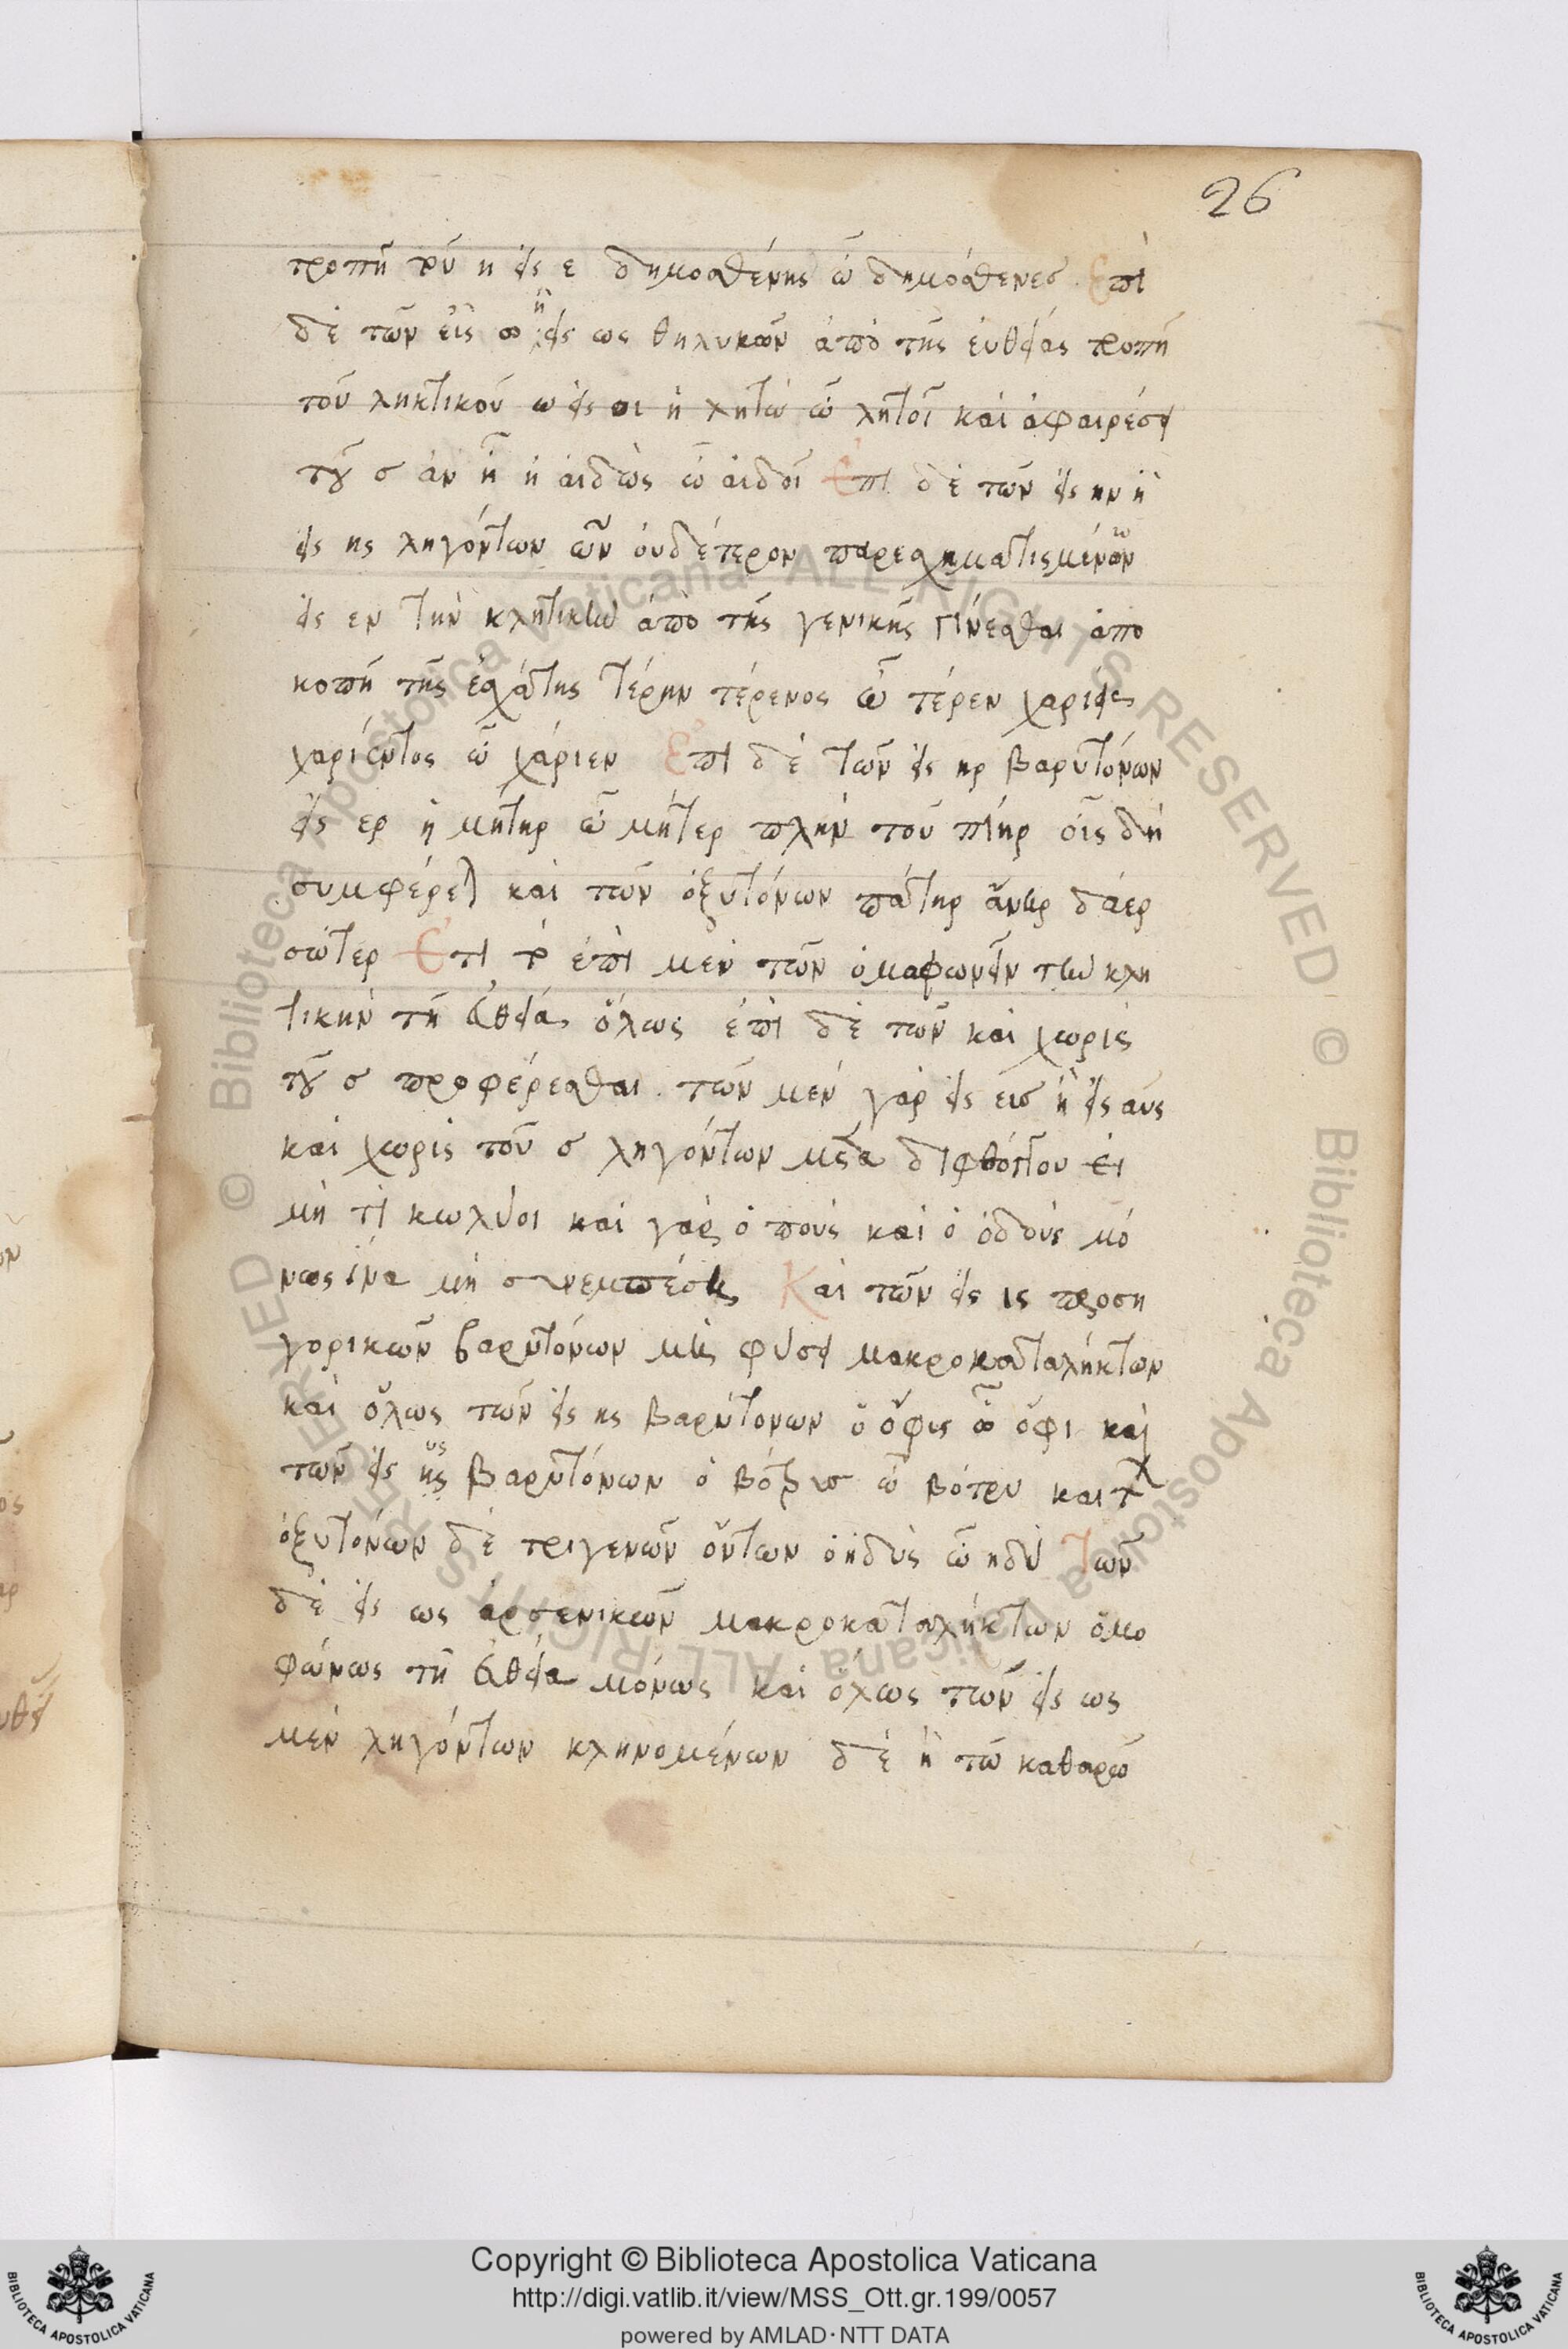 26
τροπῆ τοῦ η εἰς ε δημοσθένης ὦ δημόσθενες Ἐπὶ
δὲ τῶν εἰς ω ἢ εἰς ως θηλυκῶν ἀπὸ τῆς εὐθείας τροπῆ
τοῦ ληκτικοῦ ω εἰς οι ἡ λητὼ ὦ λητοῖ καὶ ἀφαιρέσει
τοῦ σ ἂν ἦ ἡ αἰδὼς ὦ αἰδοῖ Ἐπὶ δὲ τῶν εἰς ην ἢ
εἰς ης ληγόντων ὧν οὐδέτερον παρεσχηματισμένον
εἰς εν τὴν κλητικὴν ἀπὸ τῆς γενικῆς γίνεσθαι ἀπο
κοπῆ τῆς ἐσχάτης τέρην τέρενος ὦ τέρεν χαρίεις
χαρίεντος ὦ χάριεν Ἐπὶ δὲ τῶν εἰς ηρ βαρυτόνων
εἰς ερ ἡ μήτηρ ὦ μήτερ πλὴν τοῦ πηρ οἷς δὴ
συμφέρεται καὶ τῶν ὀξυτόνων πάτηρ ἄνερ δάερ
σώτερ Ἔτι ἐπὶ μὲν τῶν ὁμοφωνεῖν τὴν κλη
τικὴν τῆ εὐθεία ὅλως ἐπὶ δὲ τῶν καὶ χωρὶς
τοῦ σ προφέρεσθαι. τῶν μὲν γὰρ εἰς εισ ἢ εἰς αυς
καὶ χωρὶς τοῦ σ ληγόντων μετὰ διφθόγγου εἰ
μή τι κωλύοι καὶ γὰρ ὁ ποὺς καὶ ὁ ὀδοὺς μό
νως ἵνα μὴ συνεμπέση Καὶ τῶν εἰς ις προση
γορικῶν βαρυτόνων μὴ φύσει μακροκαταλήκτων
καὶ ὅλως τῶν εἰς ης βαρυτονων ὁ ὄφις ὦ ὄφι καὶ
τῶν εἰς υς βαρυτόνων ὁ βότρυσ ὦ βότρυ καὶ τῶν
ὀξυτόνων δὲ τριγενῶν ὄντων ὁ ἡδὺς ὦ ηδὺ Τῶν
δὲ εἰς ως ἀρσενικῶν μακροκαταλήκτων ὁμο
φώνως τῆ εὐθεία μόνως καὶ ὅλως τῶν εἰς ως
μὲν ληγόντων κλινομένων δὲ ἢ τῶ καθαρῶ
Copyright © Biblioteca Apostolica Vaticana
http://digi.vatlib.it/view/MSS_Ott.gr.199/0057
powered by AMLAD·NTT DATA